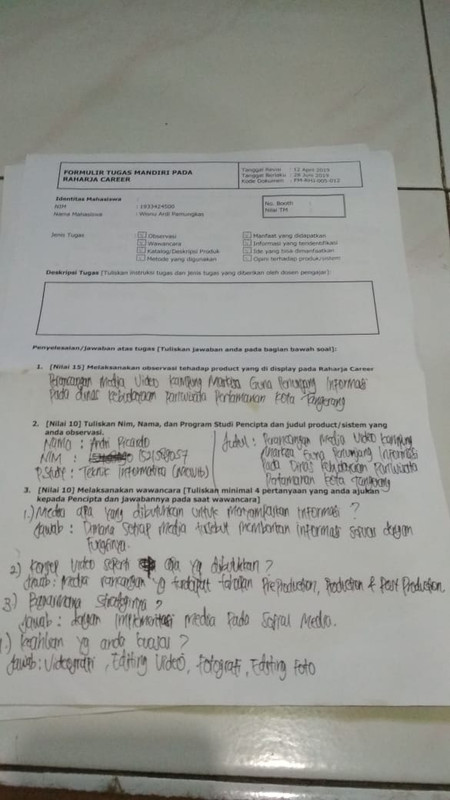 FORMULIR TUGAS MANDIRI PADA
RAHARJA CAREER
Tanggal Revisi : 12 April 2019
Tanggal Berlaku : 28 Juni 2019
Kode Dokumen : FM-RHJ-005-012
Identitas Mahasiswa
NIM : 1933424500
Nama Mahasiswa : Wisnu Ardi Pamungkas
No. Booth :
Nilai TM :
Jenis Tugas :
Observasi
Wawancara
Katalog/Deskripsi Produk
Metode yang digunakan
Manfaat yang didapatkan
Informasi yang teridentifikasi
Ide yang bisa dimanfaatkan
Opini terhadap produk/sistem
Deskripsi Tugas [Tuliskan instruksi tugas dan jenis tugas yang diberikan oleh dosen pengajar]:
Penyelesaian/jawaban atas tugas [Tuliskan jawaban anda pada bagian bawah soal]:
1. [Nilai 15] Melaksanakan observasi tehadap product yang di display pada Raharja Career
Perancangan Media Video Kampung Markisa Guna Penunjang Informasi
Pada Dinas Kebudayaan Pariwisata Pertamanan Kota Tangerang
2. [Nilai 10] Tuliskan Nim, Nama, dan Program Studi Pencipta dan judul produk/sistem yang
anda observasi.
Nama : Andri Ricardo
NIM :
P.Studi : Teknik Informatika
Judul : Perancangan Media Video Kampung
Markisa Guna Penunjang Informasi
Pada Dinas Kebudayaan Pariwisata
Pertamanan Kota Tangerang
3. [Nilai 10] Melaksanakan wawancara [Tuliskan minimal 4 pertanyaan yang anda ajukan
kepada Pencipta dan jawabannya pada saat wawancara]
1.) Media apa yang dibutuhkan untuk menyampaikan informasi ?
Jawab : Dimana setiap media tersebut memberikan informasi sesuai dengan
fungsinya.
2) Konsep Video seperti apa yg dibutuhkan ?
Jawab : Media rancangan yg terdapat tahapan PreProduction, Production & Post Production
3) Bagaimana Strateginya ?
Jawab : dengan Implementasi media Pada Sosial Media.
4.) Keahlian yg anda kuasai ?
Jawab : Videografi , Editing Video, fotografi , Editing Foto